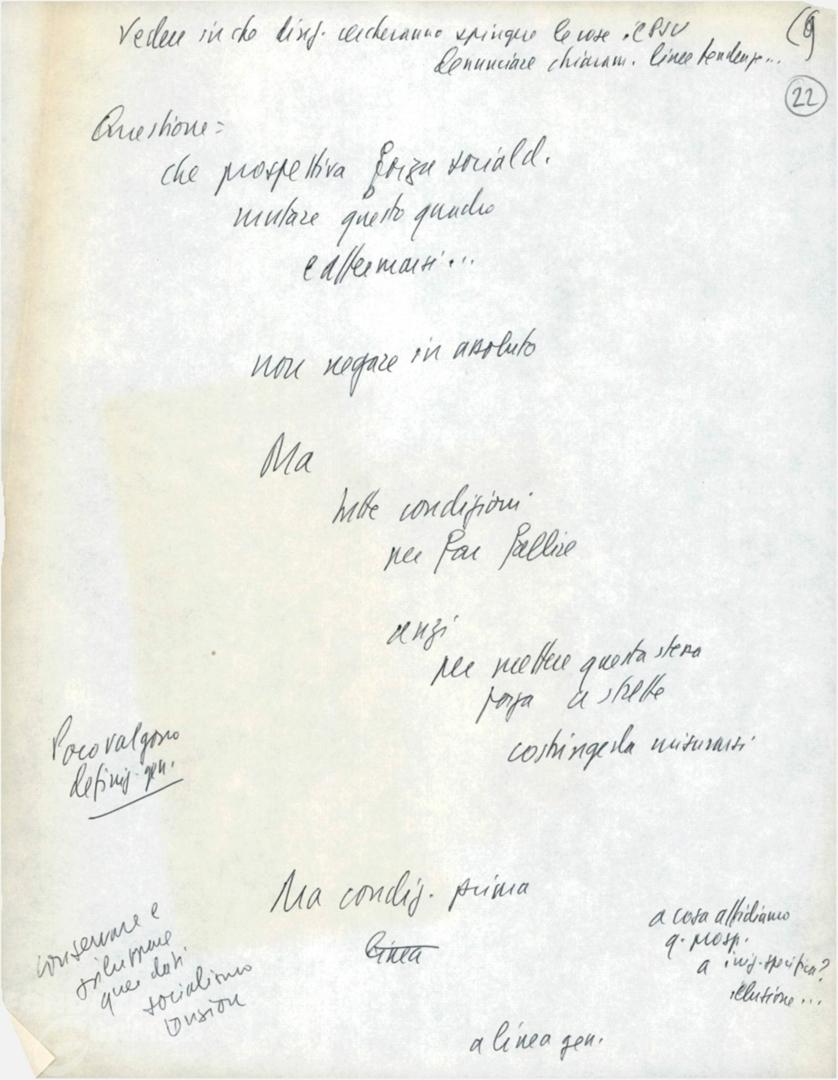 Vedere in che direz. cercheranno spingere le cose
denunciare chiaram. linee tendenz...
22
Questione =
che prospettiva forza sociald.
mutare questo quadro
e affermarsi...
non negare in assoluto
Ma
tutte condizioni
per far fallire
anzi
per mettere questa stessa
forza a strette
costringerla misurarsi
Poco valgono
definiz. gen.
Ma condiz. prima
linea
conservare e
sviluppare
quei dati
socialismo
a cosa affidiamo
q. prosp.
a iniz. specifica?
illusione...
a linea gen.